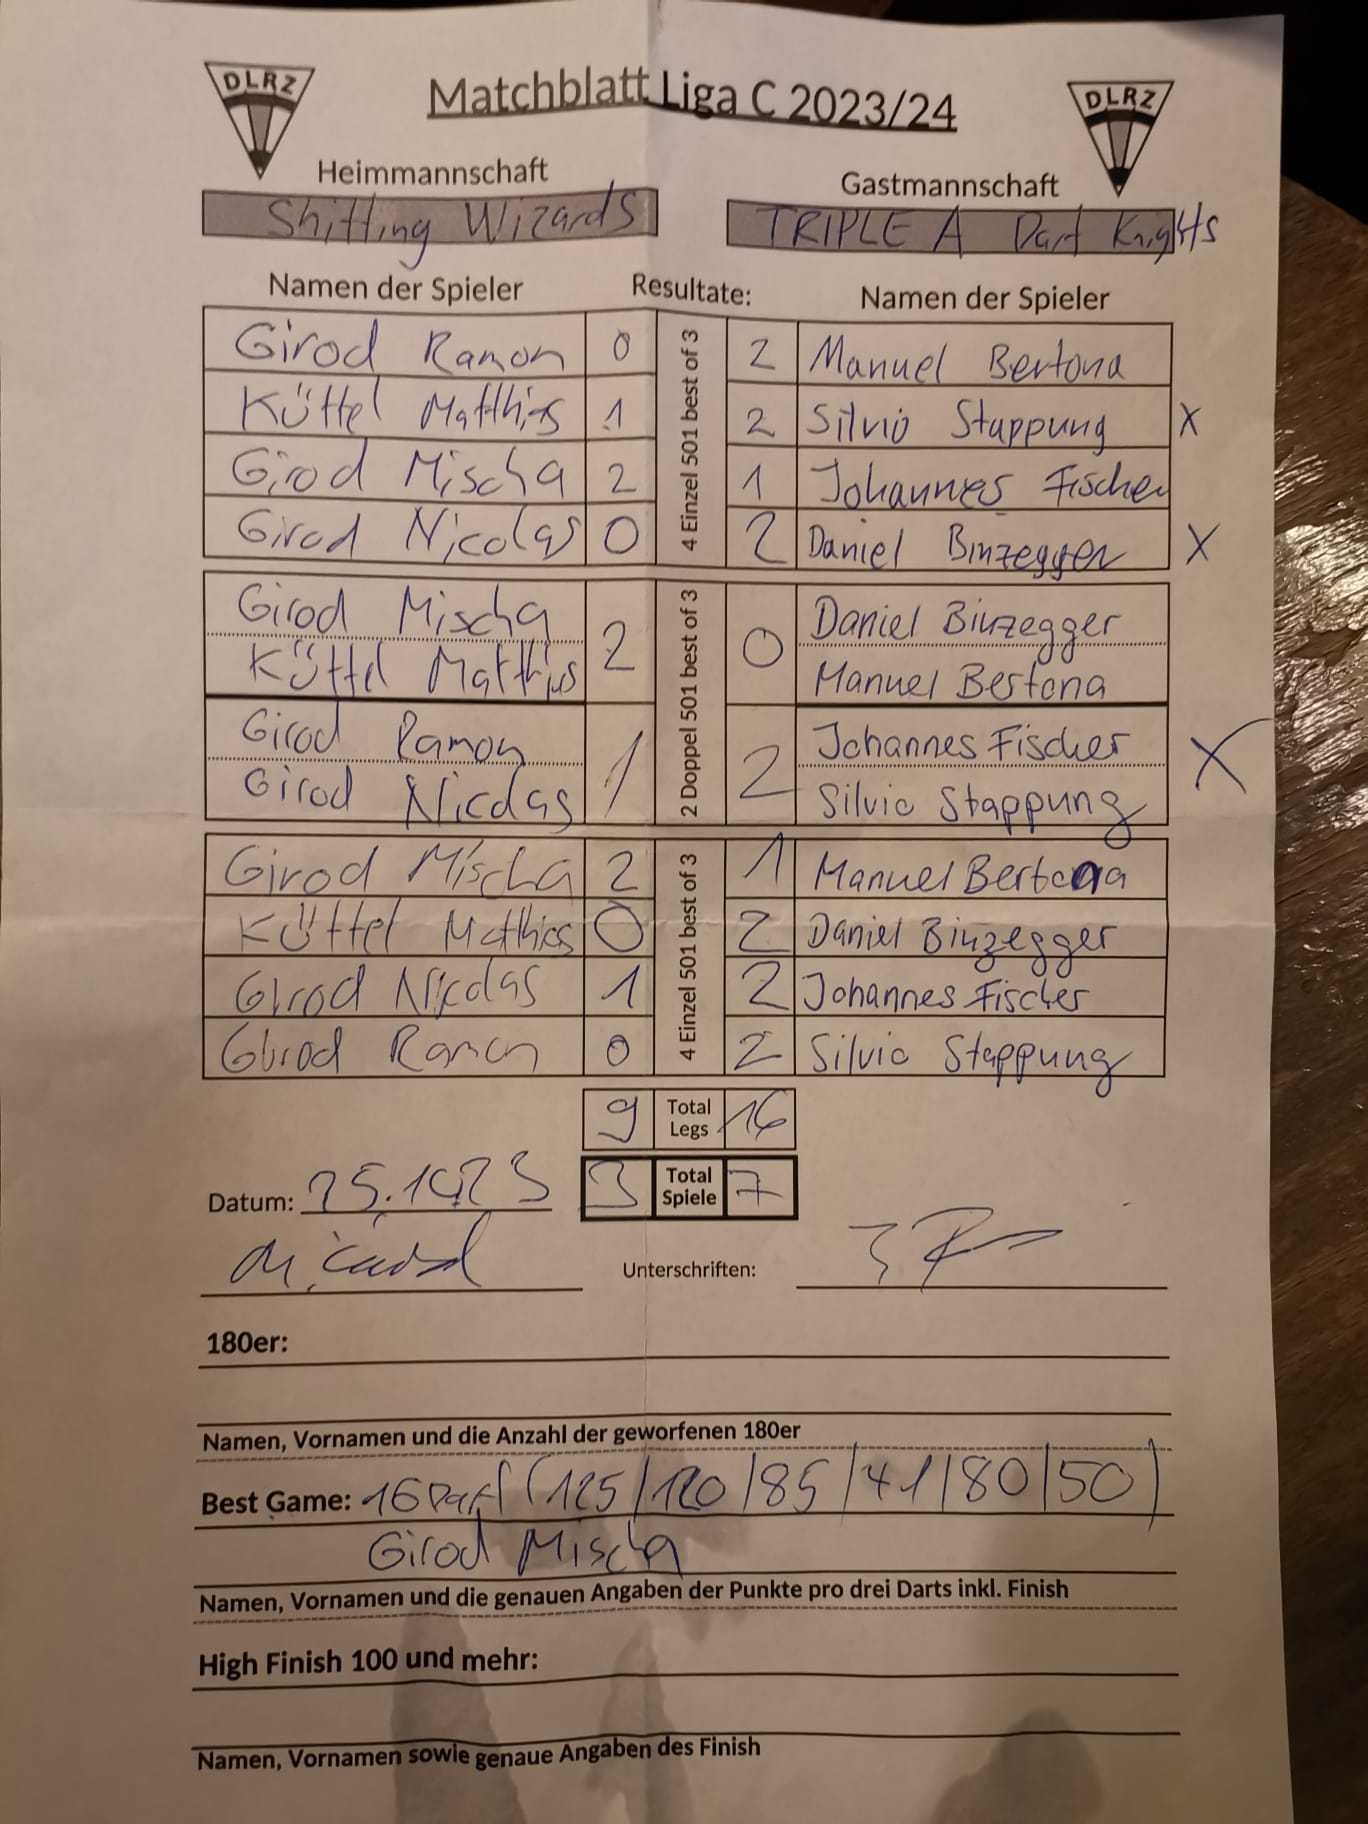 DLRZ
Matchblatt Liga C 2023/24
DLRZ
Heimmannschaft
Gastmannschaft
Shifting Wizards
TRIPLE A Dart Knights
Namen der Spieler
Resultate:
Namen der Spieler
4 Einzel 501 best of 3
Girod Ramon 0 2 Manuel Bertona
Küttel Matthias 1 2 Silvio Stappung X
Girod Mischa 2 1 Johannes Fischer
Girod Nicolas 0 2 Daniel Binzegger X
2 Doppel 501 best of 3
Girod Mischa 2 0 Daniel Binzegger
Küttel Matthias Manuel Bertona
Girod Ramon 1 2 Johannes Fischer X
Girod Nicolas Silvio Stappung
4 Einzel 501 best of 3
Girod Mischa 2 1 Manuel Bertona
Küttel Matthias 0 2 Daniel Binzegger
Girod Nicolas 1 2 Johannes Fischer
Girod Ramon 0 2 Silvio Stappung
9 Total Legs 16
Datum: 25.10.23 3 Total Spiele 7
Unterschriften:
180er:
Namen, Vornamen und die Anzahl der geworfenen 180er
Best Game: 16 Dart (125/120/85/41/80/50)
Girod Mischa
Namen, Vornamen und die genauen Angaben der Punkte pro drei Darts inkl. Finish
High Finish 100 und mehr:
Namen, Vornamen sowie genaue Angaben des Finish